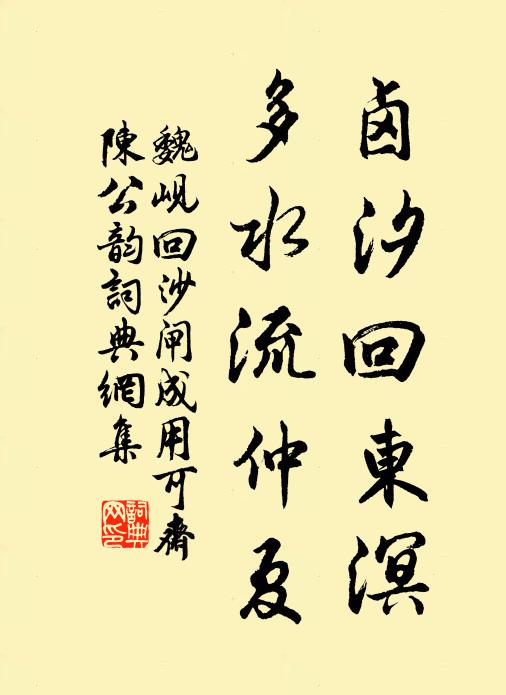 卤汐回東溟
多水流仲夏
魏峴回沙闸成用可齋
陳公韵詞典網集
詞典网印